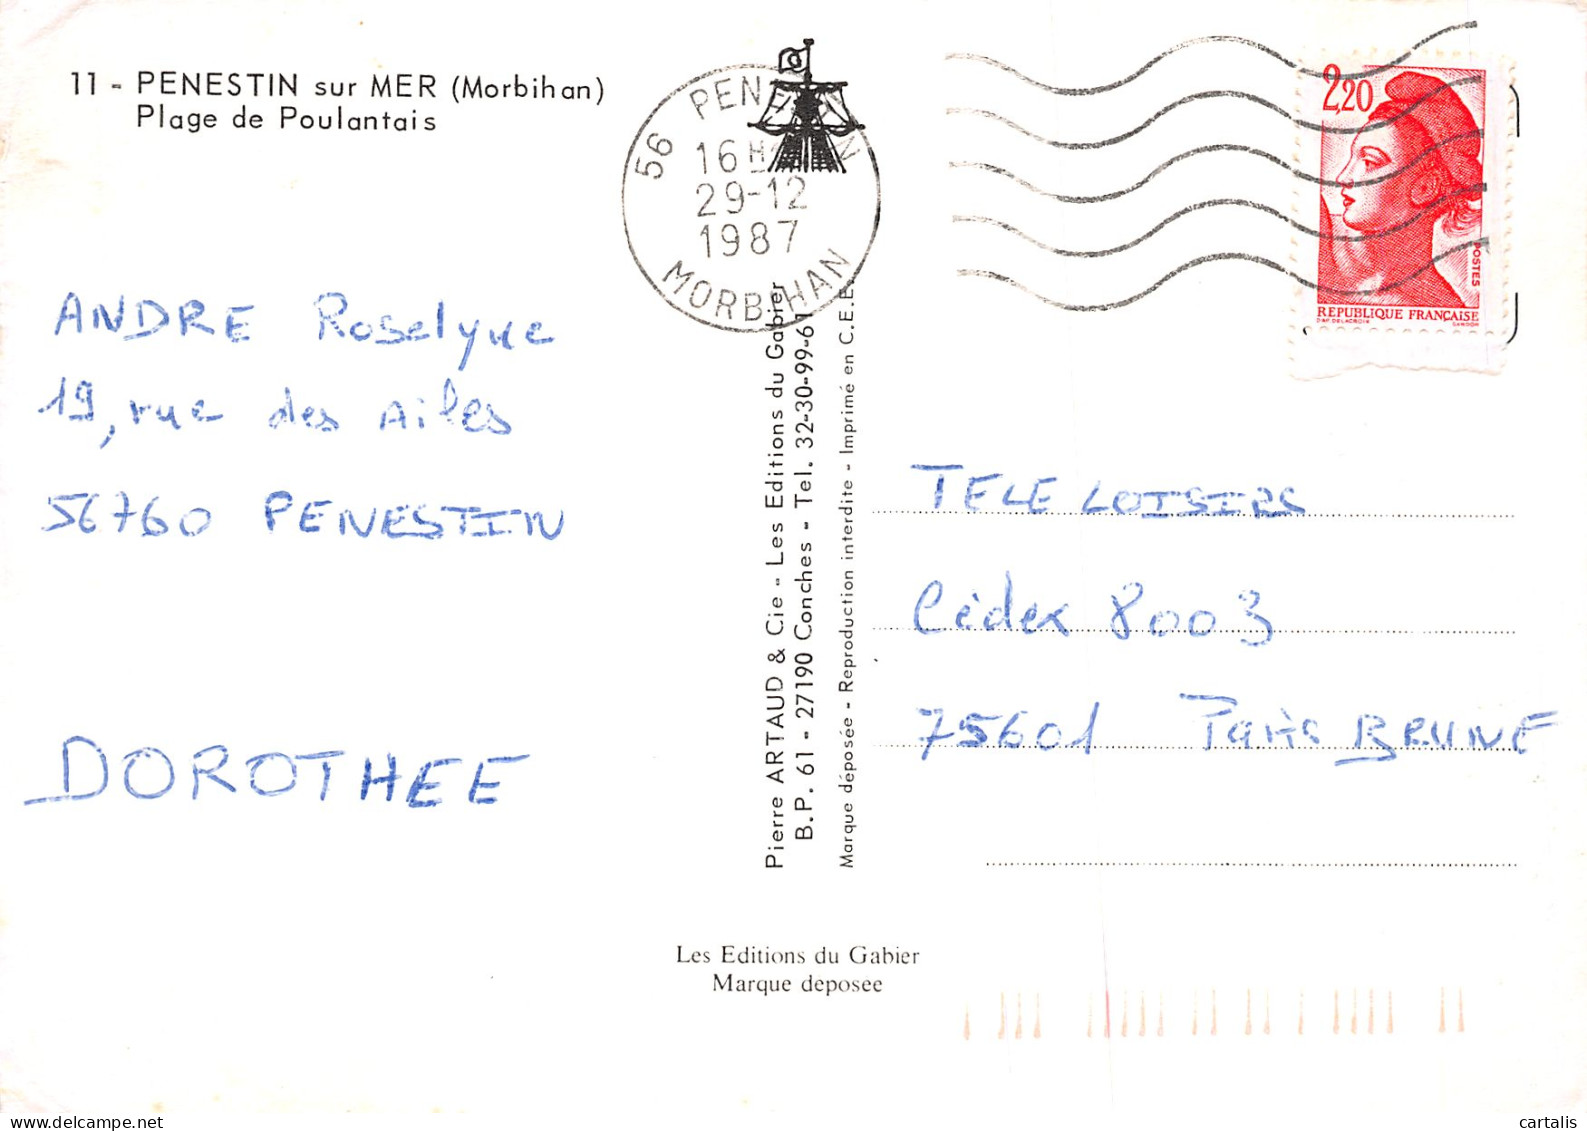 11 - PENESTIN sur MER (Morbihan)
Plage de Poulantais
56 PENESTIN
16 H
29-12
1987
MORBIHAN
2,20
POSTES
REPUBLIQUE FRANÇAISE
D'AP. DELACROIX GANDON
ANDRE Roselyne
19, rue des Ailes
56760 PENESTIN
DOROTHEE
Pierre ARTAUD & Cie - Les Editions du Gabier
B.P. 61 - 27190 Conches - Tel. 32-30-99-61
Marque déposée - Reproduction interdite - Imprimé en C.E.E.
TELE LOISIRS
Cédex 8003
75601 Paris BRUNE
Les Editions du Gabier
Marque deposee
cartalis